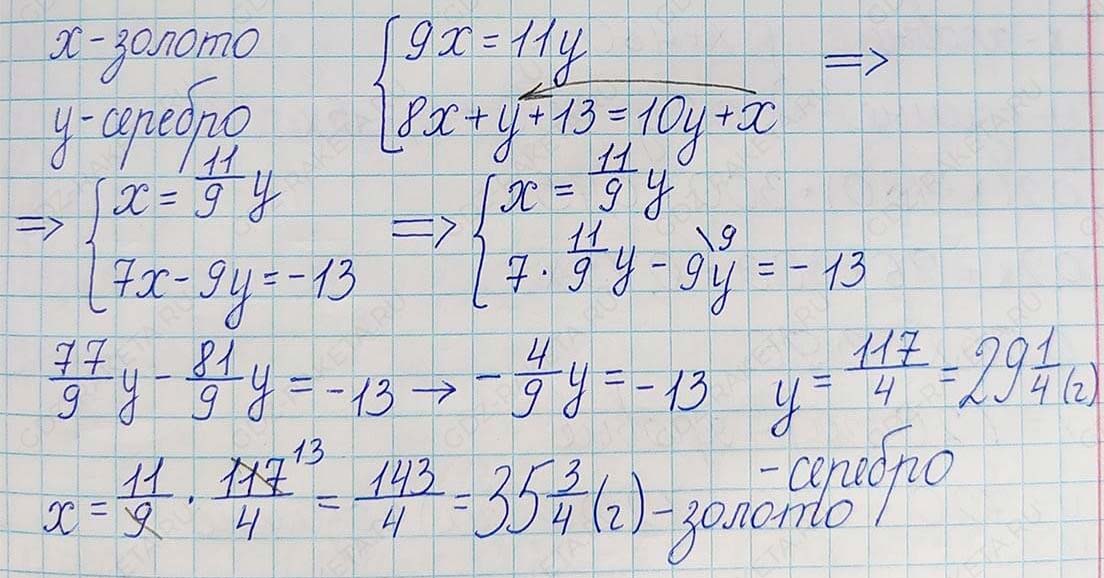 x - золото { 9x = 11y =>
y - серебро { 8x + y + 13 = 10y + x
=> { x = 11/9 y => { x = 11/9 y
7x - 9y = -13 7 · 11/9 y - 9y \9 = -13
77/9 y - 81/9 y = -13 → -4/9 y = -13 y = 117/4 = 29 1/4 (г)
- серебро
x = 11/9 · 117/4 13 = 143/4 = 35 3/4 (г) - золото